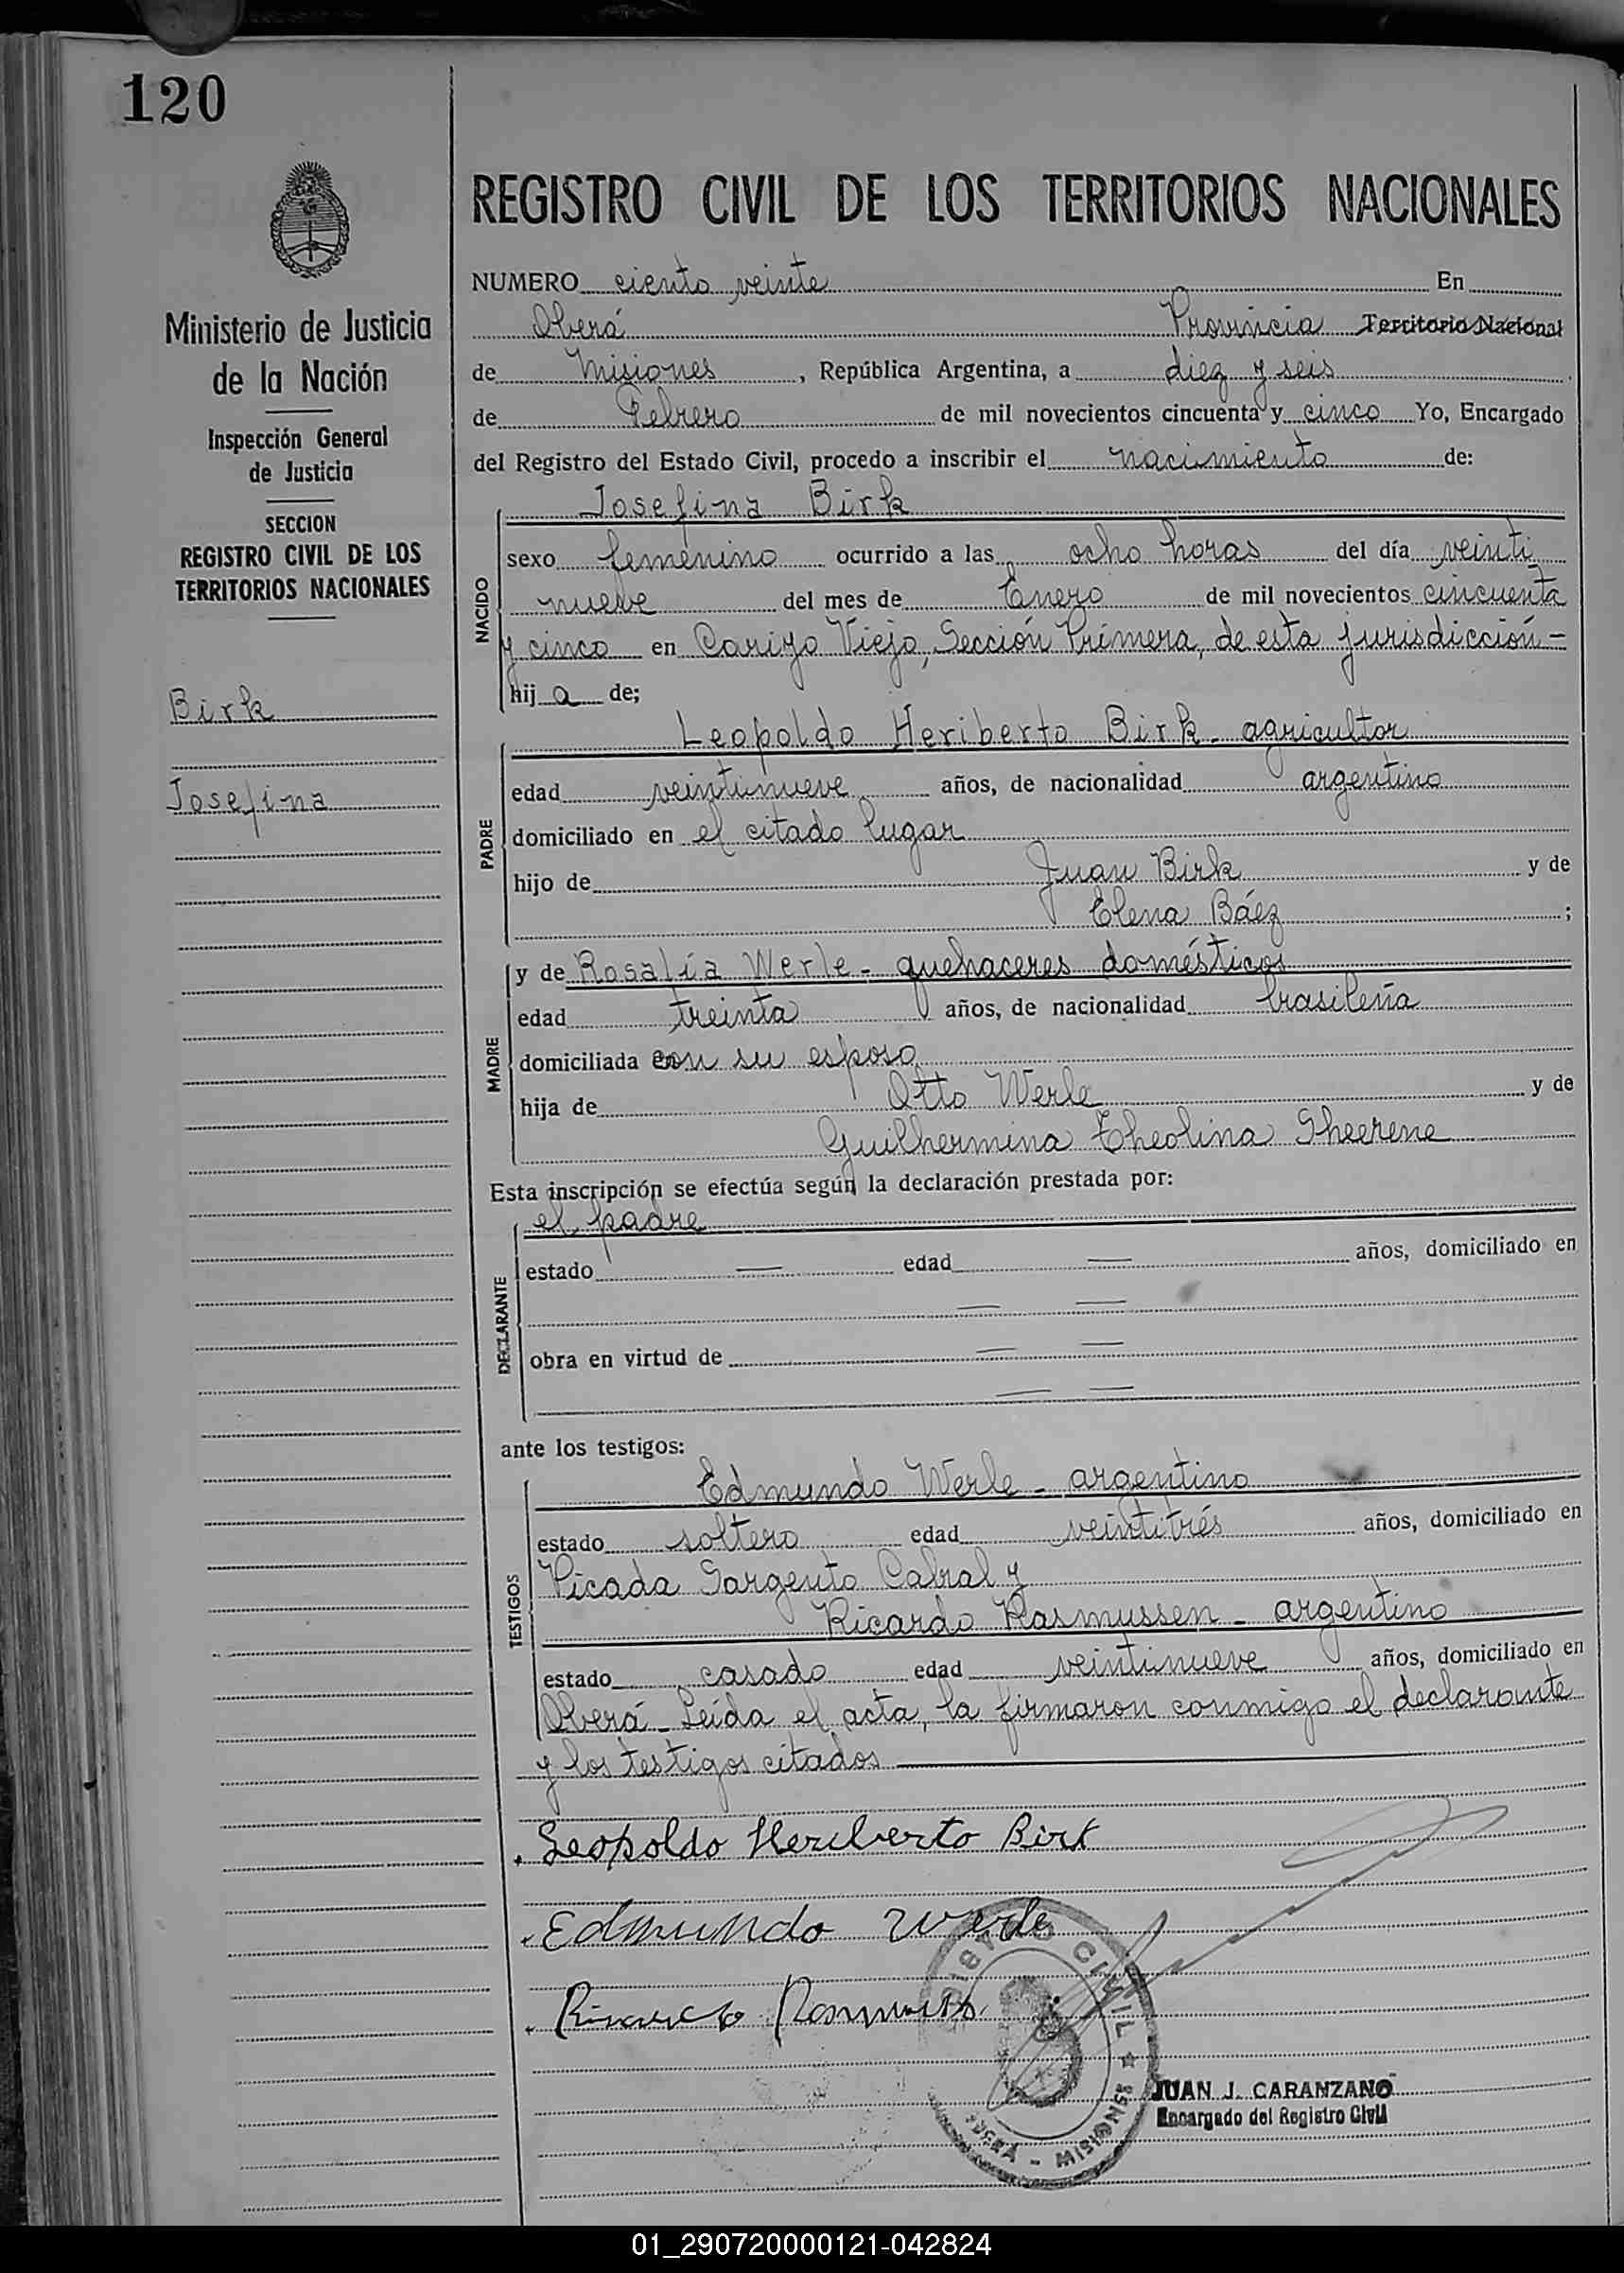 120
REGISTRO CIVIL DE LOS TERRITORIOS NACIONALES
Ministerio de Justicia
de la Nación
Inspección General
de Justicia
SECCION
REGISTRO CIVIL DE LOS
TERRITORIOS NACIONALES
Birk
Josefina
NUMERO ciento veinte En
Oberá Provincia Territorio Nacional
de Misiones, República Argentina, a diez y seis
de Febrero de mil novecientos cincuenta y cinco Yo, Encargado
del Registro del Estado Civil, procedo a inscribir el nacimiento de:
NACIDO
Josefina Birk
sexo femenino ocurrido a las ocho horas del día veinti
nueve del mes de Enero de mil novecientos cincuenta
y cinco en Viejo, Sección Primera, de esta jurisdicción-
hij a de;
PADRE
Leopoldo Heriberto Birk - agricultor
edad veintinueve años, de nacionalidad argentino
domiciliado en el citado lugar
hijo de Juan Birk y de
Elena Báez ;
MADRE
y de Rosalía Werle - quehaceres domésticos
edad treinta años, de nacionalidad brasileña
domiciliada con su esposo
hija de Otto Werle y de
Guilhermina Theolina Sheerene
Esta inscripción se efectúa según la declaración prestada por:
DECLARANTE
el padre
estado — edad — años, domiciliado en
— —
obra en virtud de — —
— —
ante los testigos:
TESTIGOS
Edmundo Werle - argentino
estado soltero edad veintitrés años, domiciliado en
Picada Sargento Cabral y
Ricardo Rasmussen - argentino
estado casado edad veintinueve años, domiciliado en
Oberá - Leída el acta, la firmaron conmigo el declarante
y los testigos citados
Leopoldo Heriberto Birk
Edmundo Werle
CIVIL
MISIONES
JUAN J. CARANZANO
Encargado del Registro Civil
01_290720000121-042824